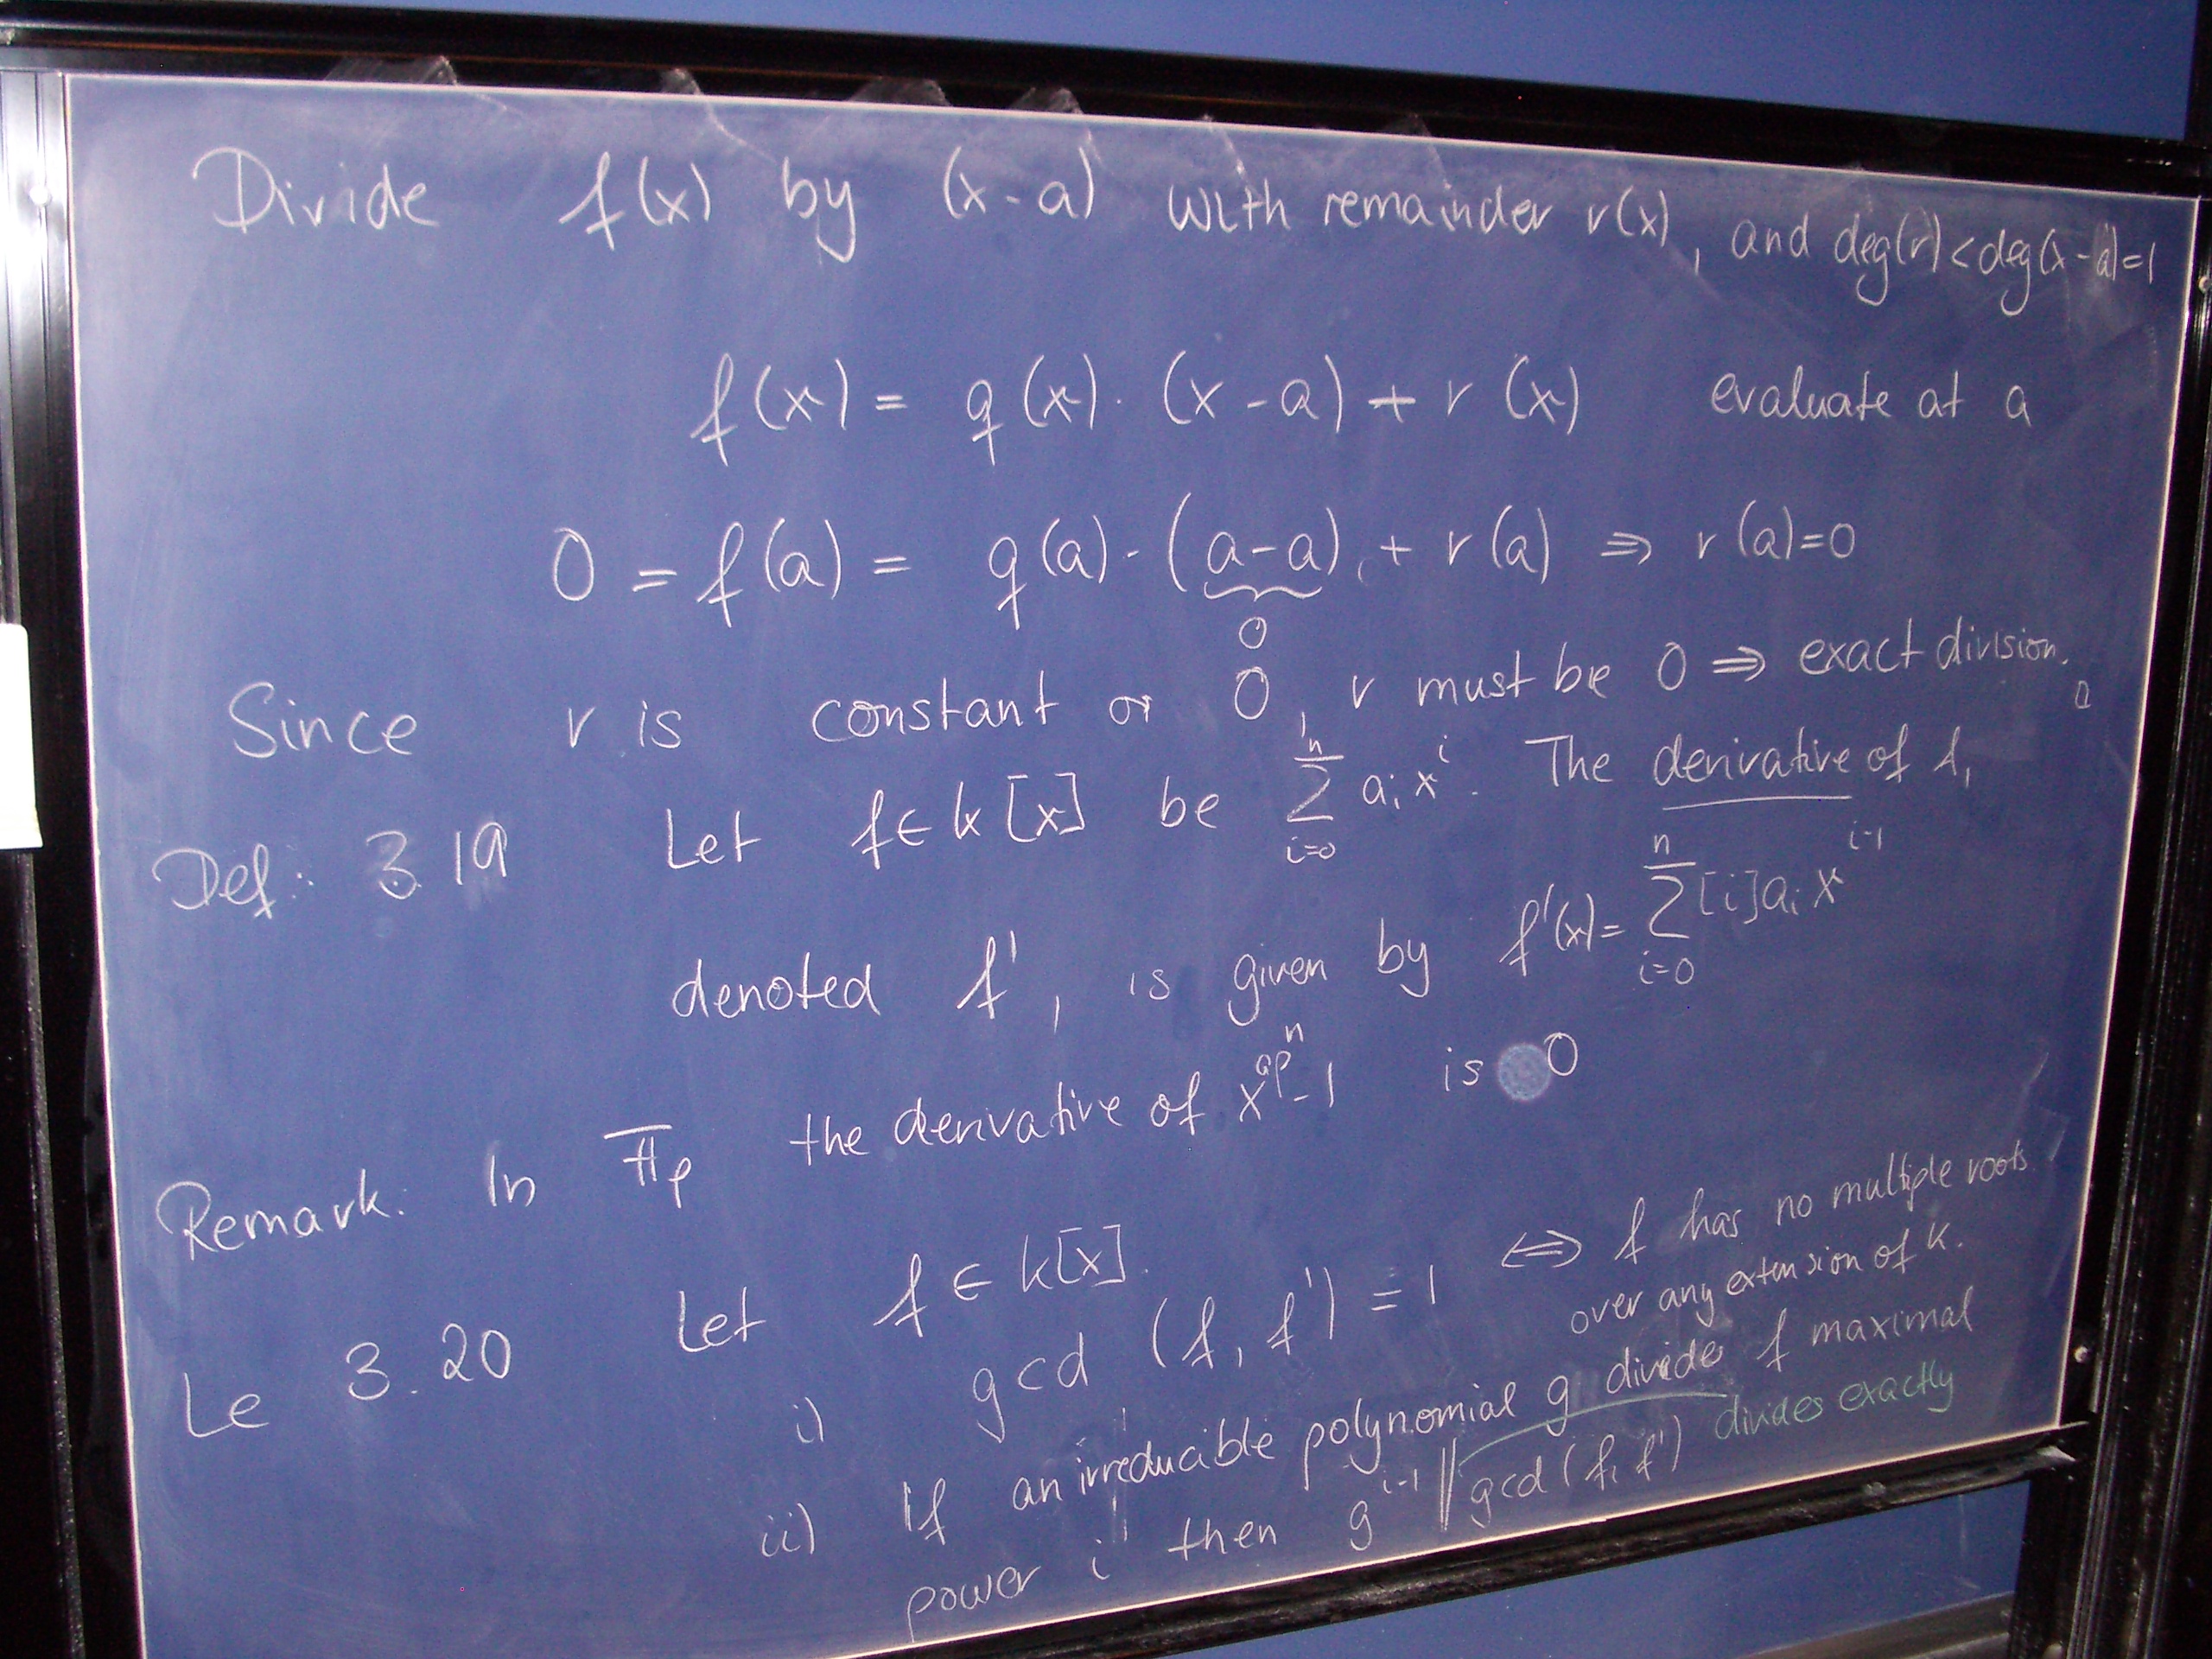 Divide f(x) by (x-a) with remainder r(x), and deg(r)<deg(x-a)=1
f(x) = q(x)·(x-a)+r(x) evaluate at a
0 = f(a) = q(a)·(a-a) + r(a) ⇒ r(a)=0
0
Since r is constant or 0, r must be 0 ⇒ exact division. □
Def: 3.19 Let f∈k[x] be ∑_{i=0}^{n} a_i x^i. The derivative of f,
denoted f', is given by f'(x)= ∑_{i=0}^{n} [i]a_i x^{i-1}
Remark: In 𝔽_p the derivative of x^{ap^n}-1 is 0
Le 3.20 Let f∈k[x].
i) gcd (f, f')=1 ⇔ f has no multiple roots
over any extension of k.
ii) If an irreducible polynomial g divides f maximal
power i then g^{i-1} || gcd(f, f') divides exactly